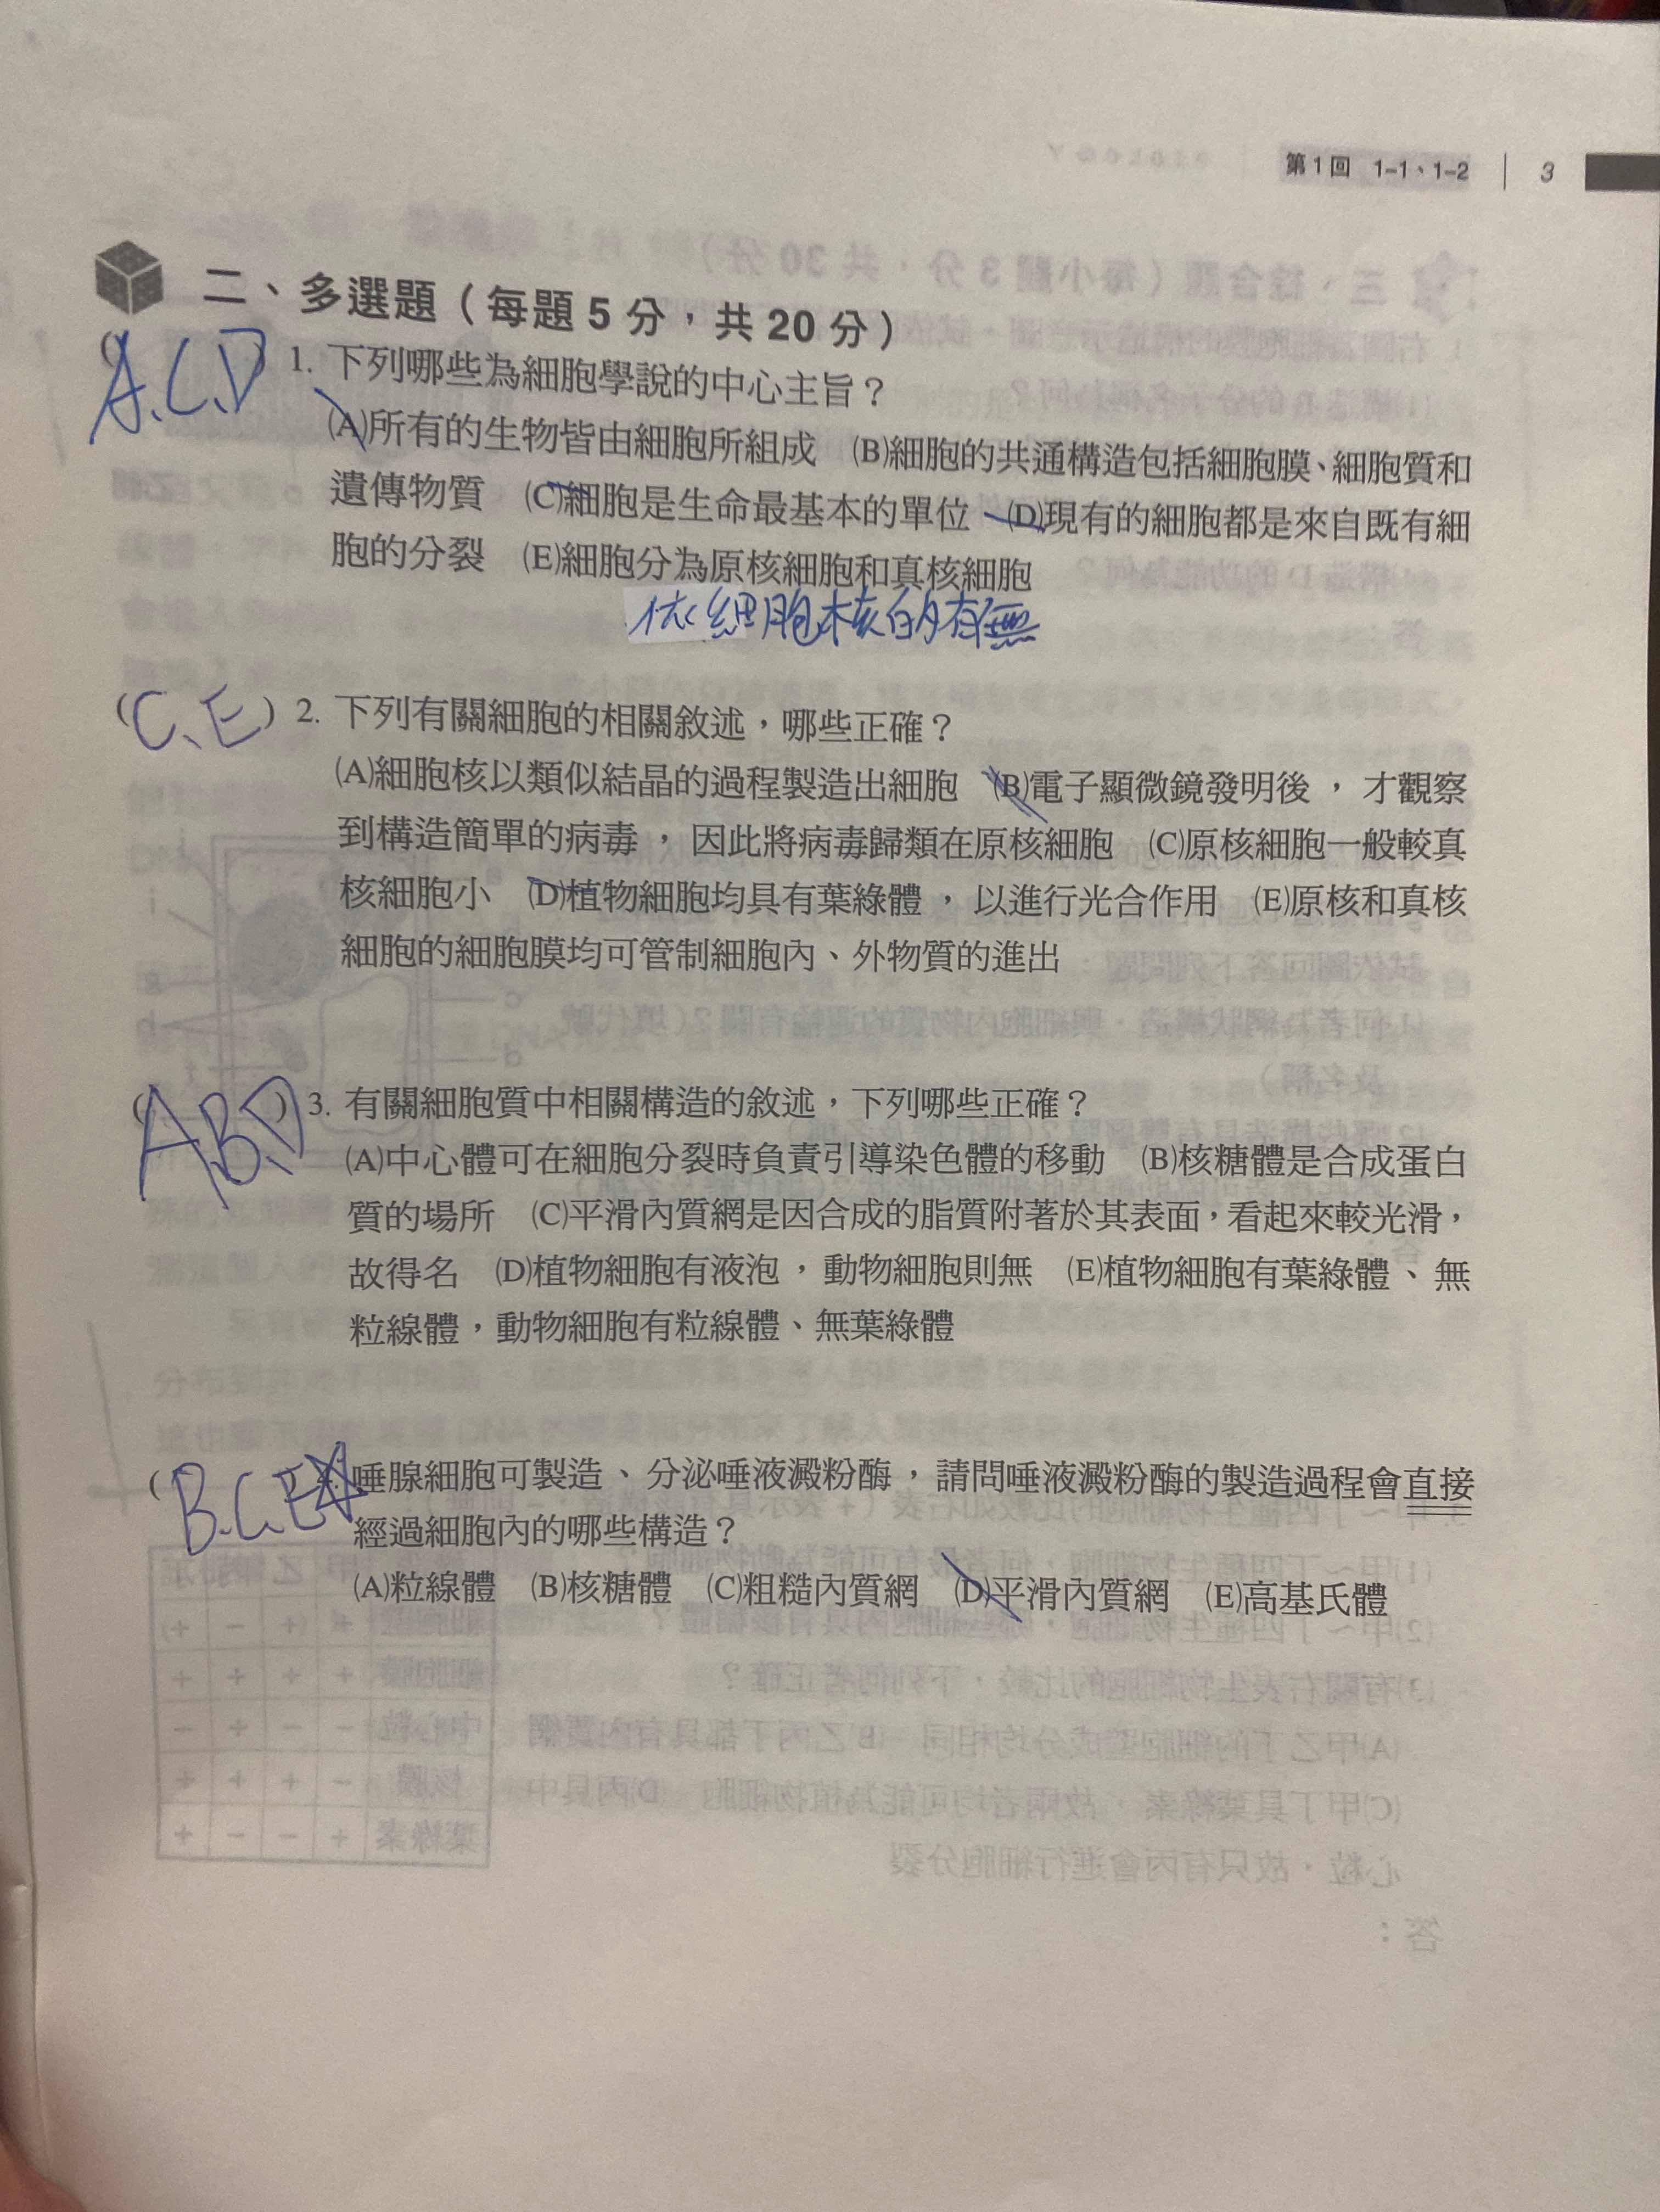 第1回 1-1、1-2 | 3
二、多選題（每題5分，共20分）
(A.C.D) 1. 下列哪些為細胞學說的中心主旨？
(A)所有的生物皆由細胞所組成 (B)細胞的共通構造包括細胞膜、細胞質和
遺傳物質 (C)細胞是生命最基本的單位 (D)現有的細胞都是來自既有細
胞的分裂 (E)細胞分為原核細胞和真核細胞
依細胞核的有無
(C、E) 2. 下列有關細胞的相關敘述，哪些正確？
(A)細胞核以類似結晶的過程製造出細胞 (B)電子顯微鏡發明後，才觀察
到構造簡單的病毒，因此將病毒歸類在原核細胞 (C)原核細胞一般較真
核細胞小 (D)植物細胞均具有葉綠體，以進行光合作用 (E)原核和真核
細胞的細胞膜均可管制細胞內、外物質的進出
(A.B.D) 3. 有關細胞質中相關構造的敘述，下列哪些正確？
(A)中心體可在細胞分裂時負責引導染色體的移動 (B)核糖體是合成蛋白
質的場所 (C)平滑內質網是因合成的脂質附著於其表面，看起來較光滑，
故得名 (D)植物細胞有液泡，動物細胞則無 (E)植物細胞有葉綠體、無
粒線體，動物細胞有粒線體、無葉綠體
(B.C.E 唾腺細胞可製造、分泌唾液澱粉酶，請問唾液澱粉酶的製造過程會直接
經過細胞內的哪些構造？
(A)粒線體 (B)核糖體 (C)粗糙內質網 (D)平滑內質網 (E)高基氏體